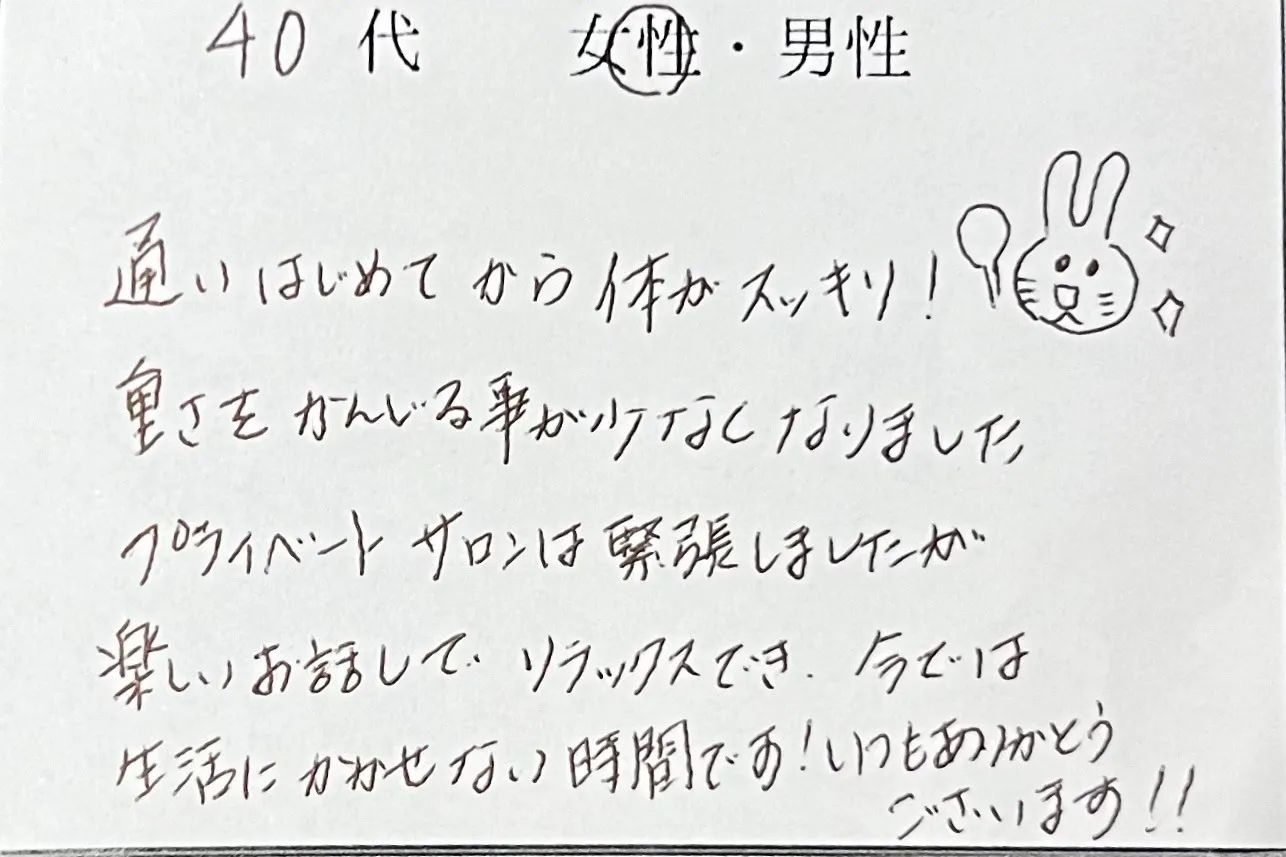 40代 女性・男性
通いはじめてから体がスッキリ!
重さをかんじる事が少けなくなりました
プライベートサロンは緊張しましたが
楽しいお話しでリラックスでき、今では
生活にかかせない時間です!いつもありがとう
ございます!!